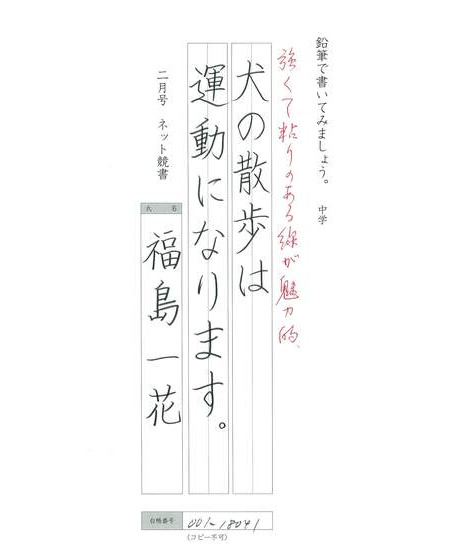 鉛筆で書いてみましょう。 中学
強くて粘りのある線が魅力的、
犬の散歩は
運動になります。
二月号 ネット競書
氏 名
福島一花
台帳番号 001-18041
(コピー不可)